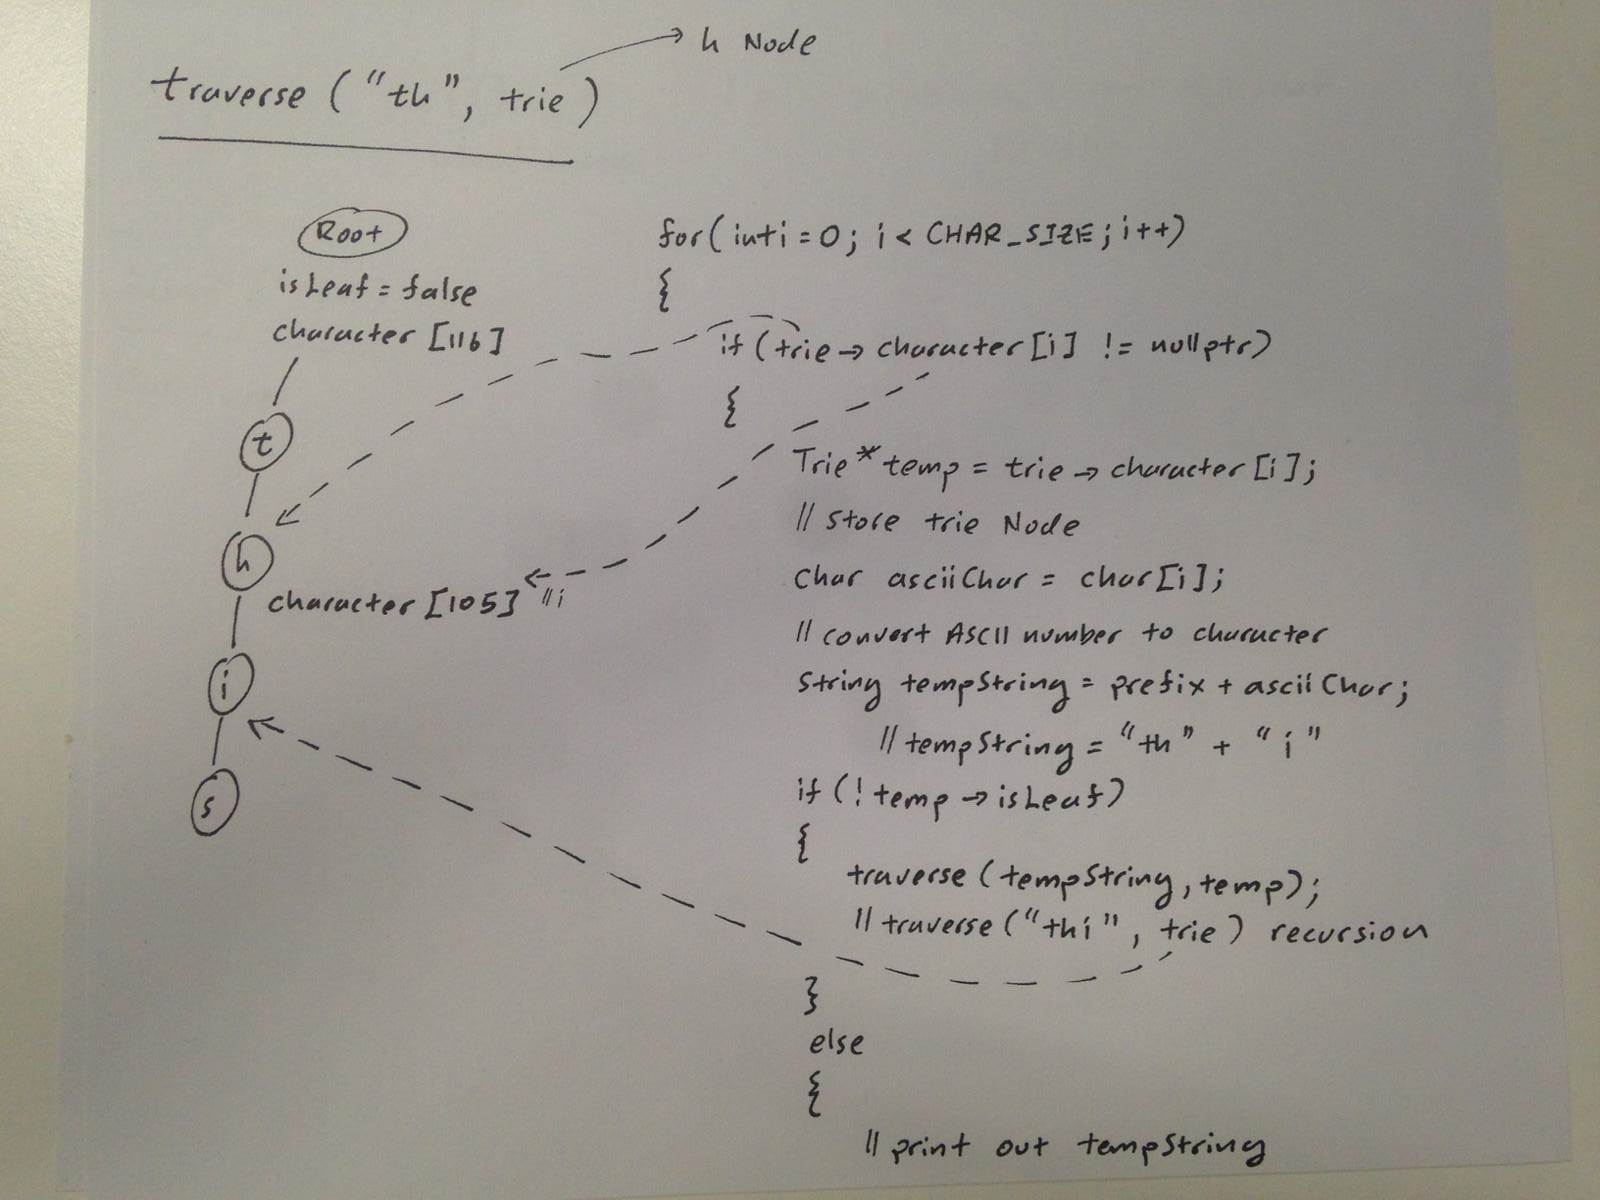 h Node
traverse ("th", trie)
Root
isLeaf = false
character [116]
t
h
character [105] //i
i
s
for( int i = 0; i < CHAR_SIZE; i++)
{
if (trie → character [i] != nullptr)
{
Trie* temp = trie → character [i];
// store trie Node
char asciiChar = char[i];
// convert ASCII number to character
String tempString = prefix + asciiChar;
// tempString = "th" + "i"
if (! temp → isLeaf)
{
traverse (tempString, temp);
// traverse ("thi", trie) recursion
}
else
{
// print out tempString